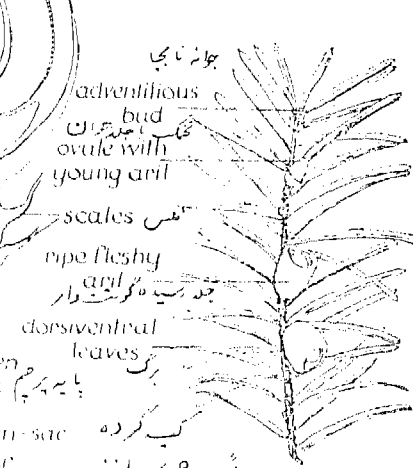 جوانه نابجا
adventitious
bud
تخمک با جلد جوان
ovule with
young aril
scales فلس
ripe fleshy
aril
جلد رسیده گوشت دار
dorsiventral
leaves
برگ
پایه پرچم
کیسه گرده